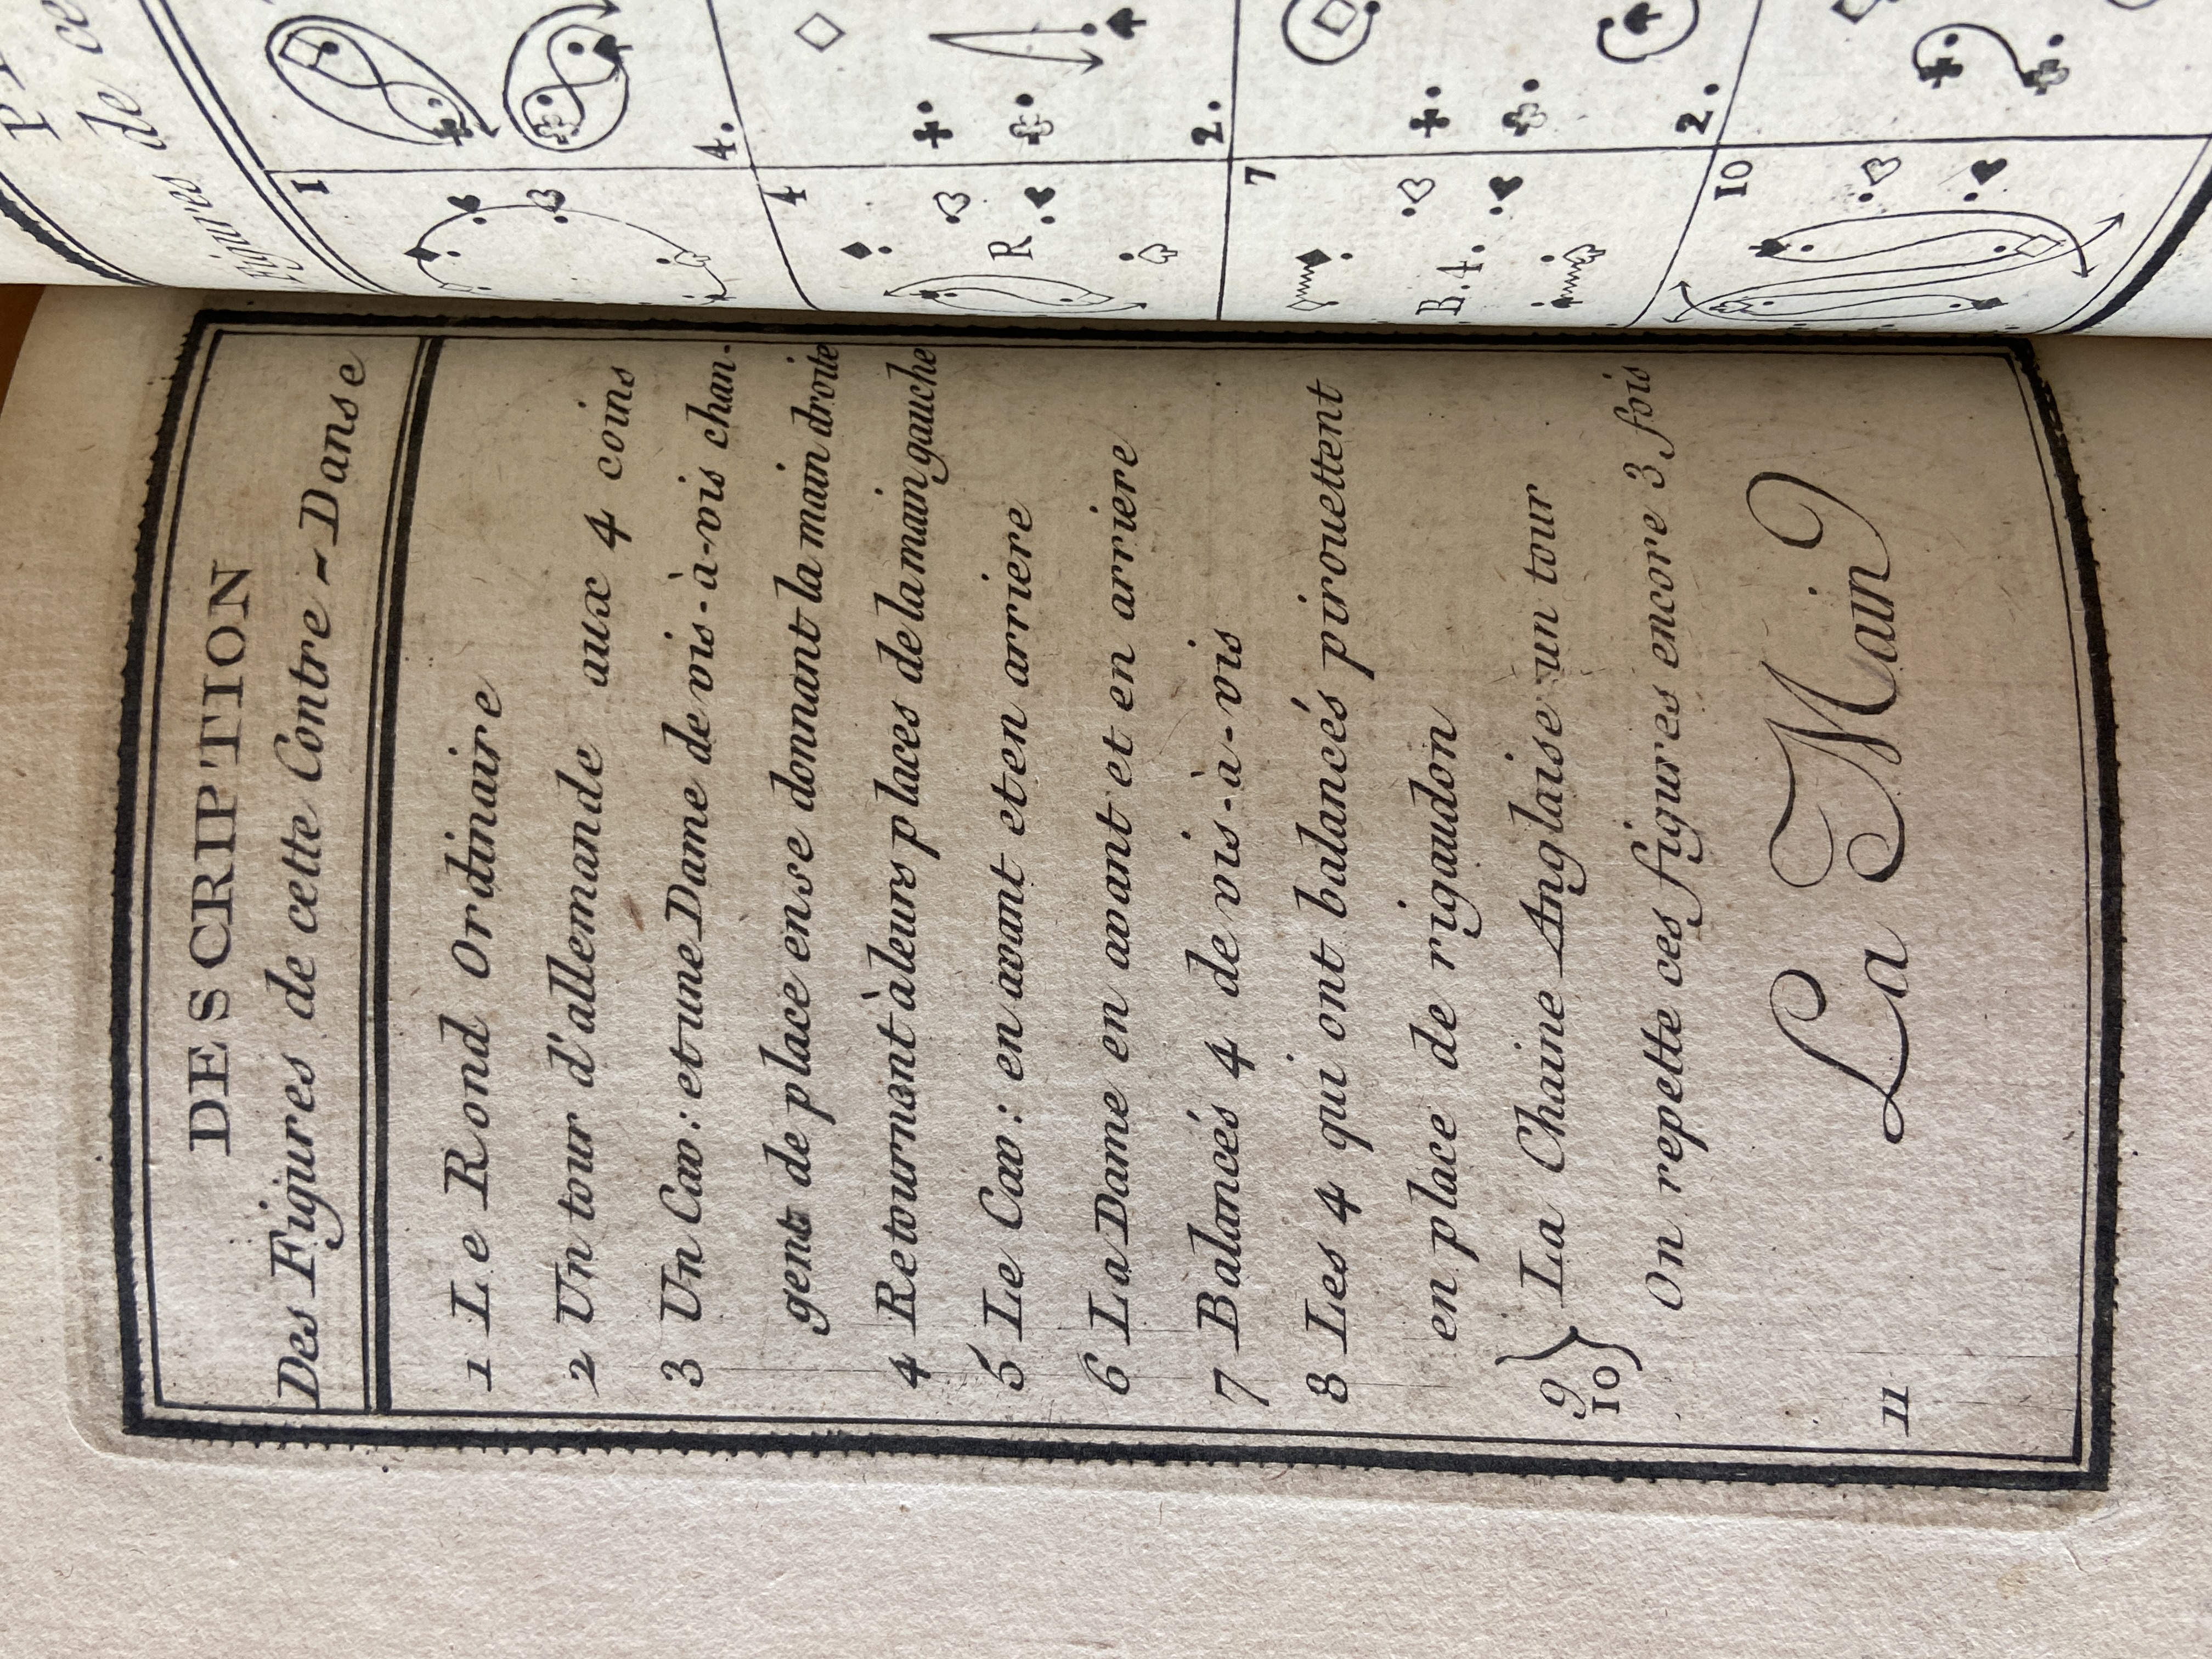 DESCRIPTION
Des Figures de cette Contre-Danse
1 Le Rond Ordinaire
2 Un tour d'allemande aux 4 coins
3 Un Cav: et une Dame de vis-à-vis chan-
gent de place en se donnant la main droite
4 Retournant à leurs places de la main gauche
5 Le Cav: en avant et en arriere
6 La Dame en avant et en arriere
7 Balancés 4 de vis-à-vis
8 Les 4 qui ont balancés pirouettent
en place de rigaudon
9
10 } La Chaine Anglaise un tour
On repette ces figures encore 3 fois
11 La Main
Figures de
1
4.
4
R
2.
7
B.4.
2.
10